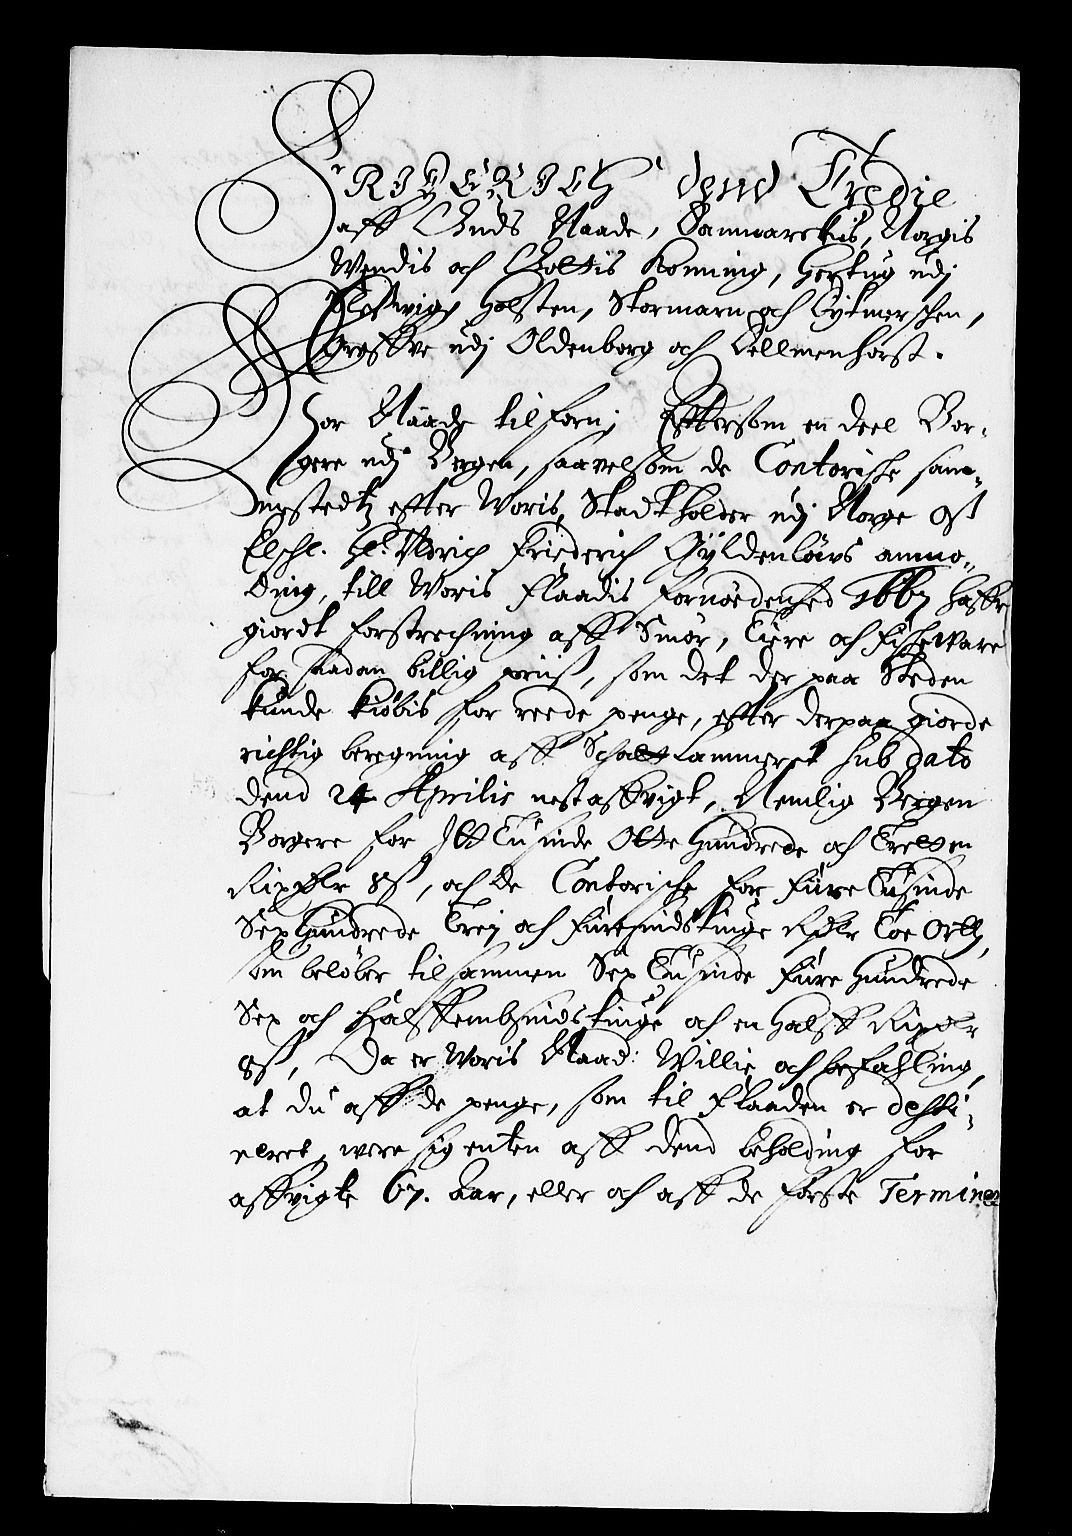 FRIDERICH dend Tredie
aff Guds Naade, Danmarckis, Norgis
Wendis och Gottis Konning, Hertug udj
Slesswig, Holsten, Stormarn och Dytmerschen,
Greffve udj Oldenborg och Dellmenhorst.
Vor Naade tilforn; Efftersom en deel Bor-
gere udj Bergen, saavelsom de Contorische sam-
mestedtz efter Woris Stadtholder udj Norge Oss
Elschl. Hl. Ulrich Friederich Gÿldenlöws anmo-
ding, till Woris Flaadis fornøedenhed 1667 haffr
giordt forstrechning aff Smør, Tiere och Fischeware
for saadan billig priiss, som det der paa Steden
kunde kiøbis for reede penge, efter derpaa giorde
richtig beregning aff Schatt Cammeret sub dato
dend 24 Aprilis nestaffvigt, Nemlig Bergen
Borgere for Itt Tusinde Otte Hundrede och Tretten
Rixdlr 8ss, och de Contorische for Fiire Tusinde
Sex Hundrede Trej och Fiiresindstiuge Rdlr Toe Ortt,
som beløber tilsammen Sex Tusinde Fiire Hundrede
Sex och Halffembsindstiuge och en Halff Rixdlr
8ss, Da er Woris Naad: Willie och befahling,
at du aff de penge, som til Flaaden er desti-
neret, were sig enten aff dend beholding for
affvigte 67. Aar, eller och aff de første Terminer